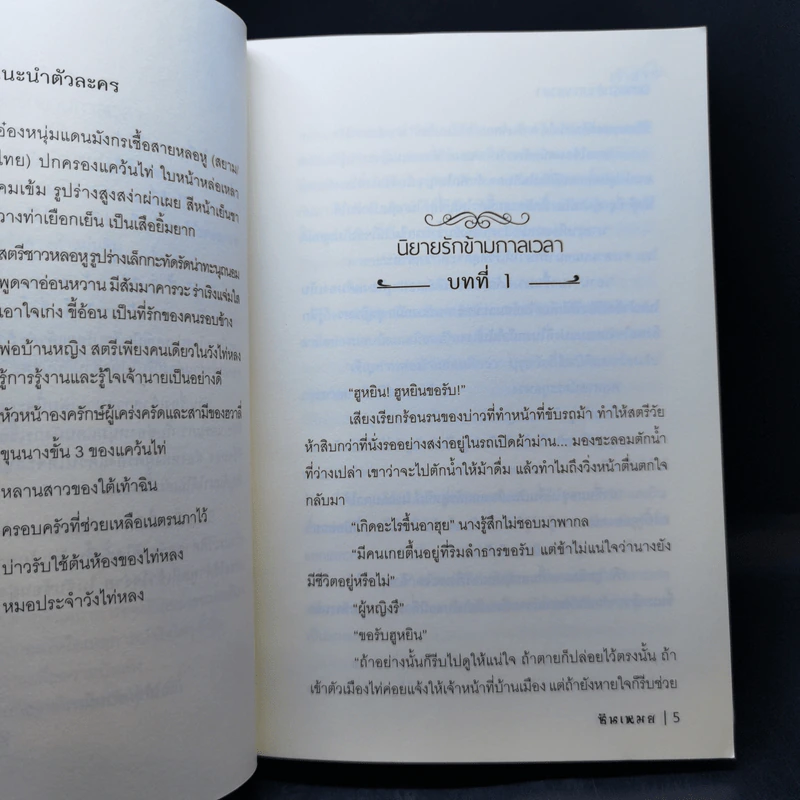 แนะนำตัวละคร
อ๋องหนุ่มแดนมังกรเชื้อสายหลอหู (สยาม/
ไทย) ปกครองแคว้นไท่ ใบหน้าหล่อเหลา
คมเข้ม รูปร่างสูงสง่าผ่าเผย สีหน้าเย็นชา
วางท่าเยือกเย็น เป็นเสือยิ้มยาก
สตรีชาวหลอหู รูปร่างเล็กกะทัดรัดน่าทะนุถนอม
พูดจาอ่อนหวาน มีสัมมาคารวะ ร่าเริงแจ่มใส
เอาใจเก่ง ขี้อ้อน เป็นที่รักของคนรอบข้าง
พ่อบ้านหญิง สตรีเพียงคนเดียวในวังไท่หลง
รู้การรู้งานและรู้ใจเจ้านายเป็นอย่างดี
หัวหน้าองครักษ์ผู้เคร่งครัดและสามีของฮวาลี่
ขุนนางขั้น 3 ของแคว้นไท่
หลานสาวของใต้เท้าฉิน
ครอบครัวที่ช่วยเหลือเนตรนภาไว้
บ่าวรับใช้ต้นห้องของไท่หลง
หมอประจำวังไท่หลง
นิยายรักข้ามกาลเวลา
บทที่ 1
“ฮูหยิน! ฮูหยินขอรับ!”
เสียงเรียกร้อนรนของบ่าวที่ทำหน้าที่ขับรถม้า ทำให้สตรีวัย
ห้าสิบกว่าที่นั่งรออย่างสง่าอยู่ในรถเปิดผ้าม่าน... มองชะลอมตักน้ำ
ที่ว่างเปล่า เขาว่าจะไปตักน้ำให้ม้าดื่ม แล้วทำไมถึงวิ่งหน้าตื่นตกใจ
กลับมา
“เกิดอะไรขึ้นอาฮุย” นางรู้สึกไม่ชอบมาพากล
“มีคนเกยตื้นอยู่ที่ริมลำธารขอรับ แต่ข้าไม่แน่ใจว่านางยัง
มีชีวิตอยู่หรือไม่”
“ผู้หญิงรึ”
“ขอรับฮูหยิน”
“ถ้าอย่างนั้นก็รีบไปดูให้แน่ใจ ถ้าตายก็ปล่อยไว้ตรงนั้น ถ้า
เข้าตัวเมืองไท่ค่อยแจ้งให้เจ้าหน้าที่บ้านเมือง แต่ถ้ายังหายใจก็รีบช่วย
ยินเหมย | 5